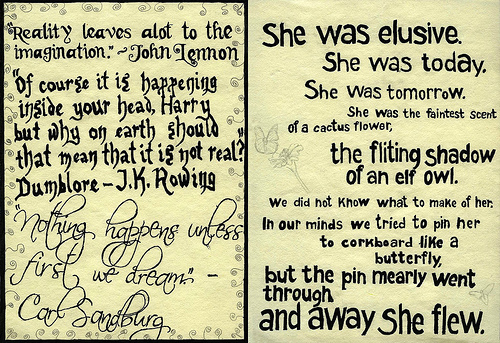 "Reality leaves alot to the
imagination." ~ John Lennon
"Of course it is happening
inside your head, Harry
but why on earth should
that mean that it is not real?"
Dumblore - J.K. Rowing
"Nothing happens unless
first we dream." -
Carl Sandburg
She was elusive.
She was today.
She was tomorrow.
She was the faintest scent
of a cactus flower,
the fliting shadow
of an elf owl.
We did not know what to make of her.
In our minds we tried to pin her
to corkboard like a
butterfly,
but the pin mearly went
through
and away She flew.